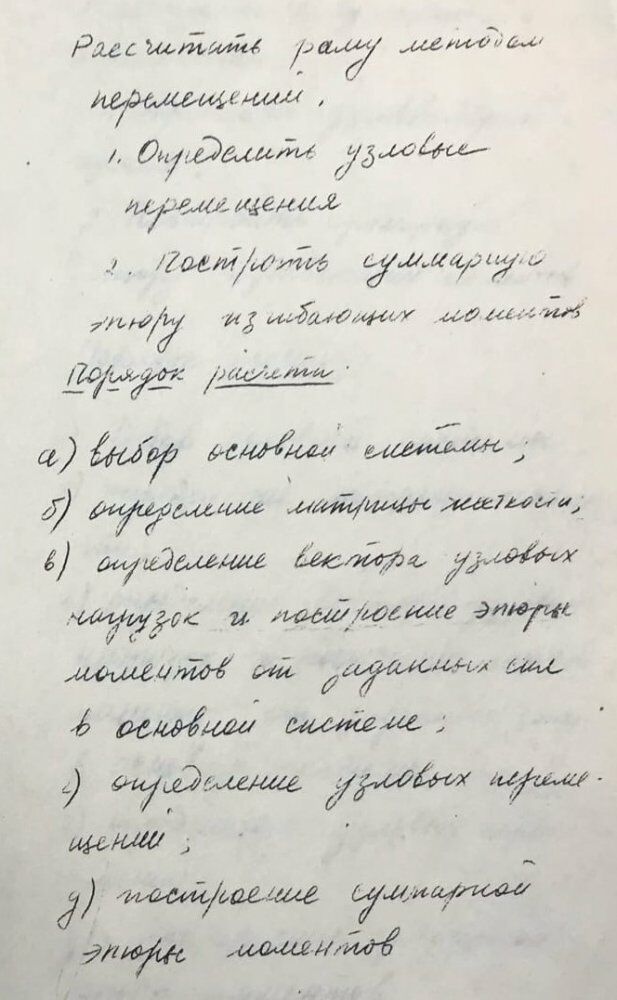 Рассчитать раму методом
перемещений.
1. Определить узловые
перемещения
2. Построть суммарную
эпюру изгибающих моментов
Порядок расчета.
а) выбор основной системы;
б) определение матрицы жесткости;
в) определение вектора узловых
нагрузок и построение эпюры
моментов от заданных сил
в основной системе;
г) определение узловых переме-
щений;
д) построение суммарной
эпюры моментов